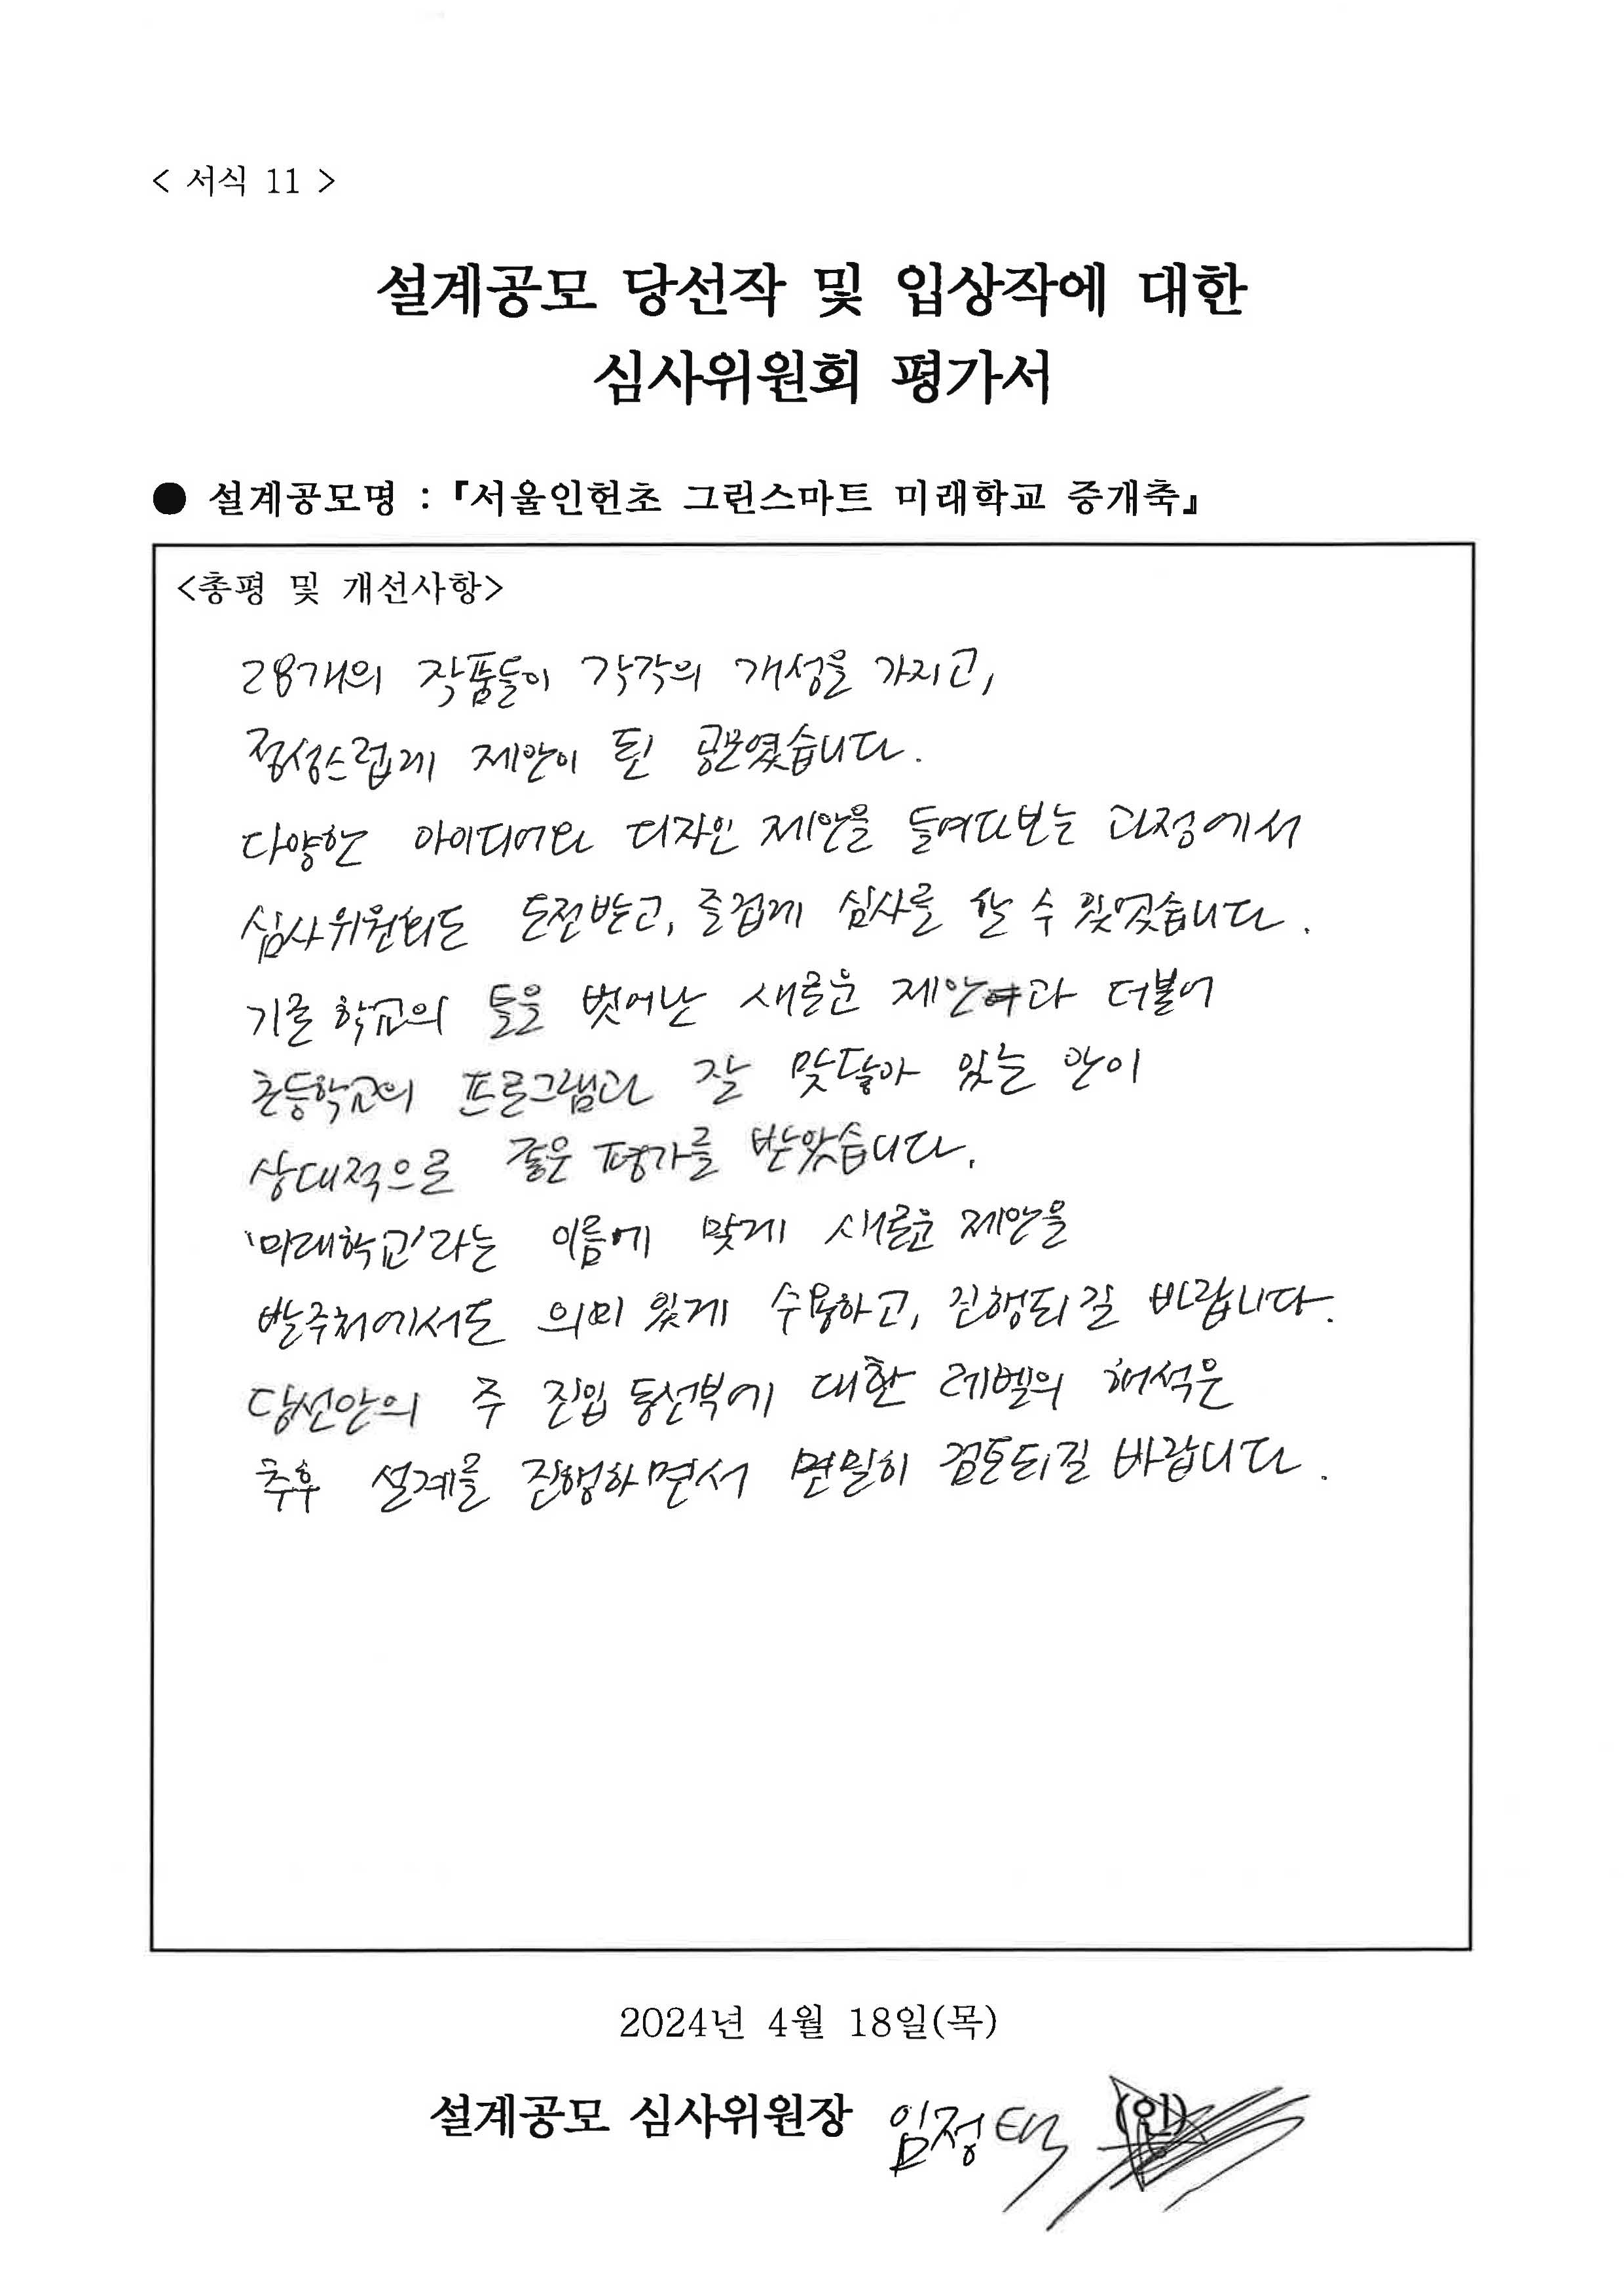 < 서식 11 >
설계공모 당선작 및 입상작에 대한
심사위원회 평가서
● 설계공모명 : 『서울인헌초 그린스마트 미래학교 증개축』
<총평 및 개선사항>
28개의 작품들이 각각의 개성을 가지고,
정성스럽게 제안이 된 공모였습니다.
다양한 아이디어와 디자인 제안을 들여다보는 과정에서
심사위원회도 도전받고, 즐겁게 심사를 할 수 있었습니다.
기존 학교의 틀을 벗어난 새로운 제안과 더불어
초등학교의 프로그램과 잘 맞닿아 있는 안이
상대적으로 좋은 평가를 받았습니다.
'미래학교'라는 이름에 맞게 새로운 제안을
발주처에서도 의미 있게 수용하고, 진행되길 바랍니다.
당선안의 주 진입 동선부에 대한 레벨의 해석은
추후 설계를 진행하면서 면밀히 검토되길 바랍니다.
2024년 4월 18일(목)
설계공모 심사위원장 임정택 (인)